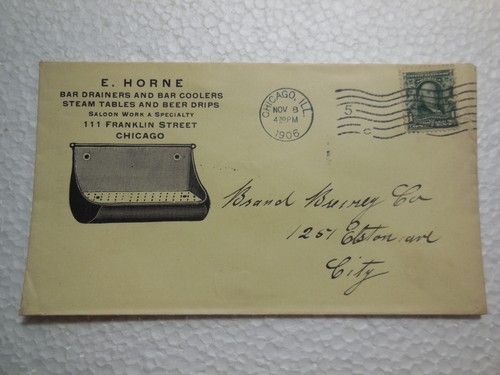 E. HORNE
BAR DRAINERS AND BAR COOLERS
STEAM TABLES AND BEER DRIPS
SALOON WORK A SPECIALTY
111 FRANKLIN STREET
CHICAGO
CHICAGO, ILL.
NOV 8
PM
1906
5
C
Brand Brewing Co
1251 Elston ave
City